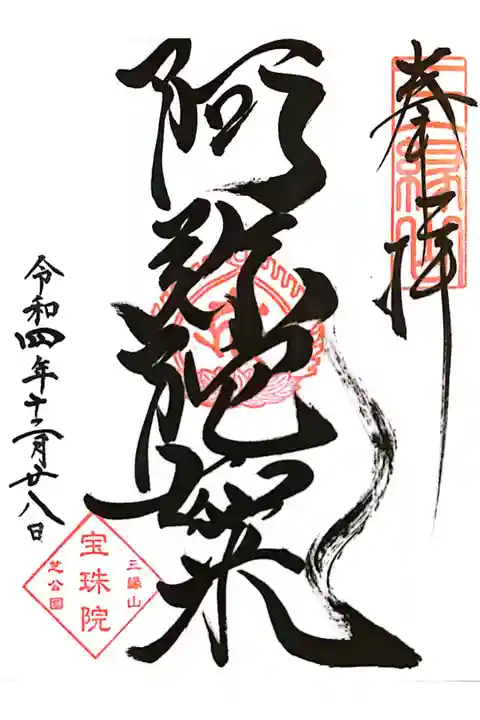 奉拝
三縁山
阿弥陀如来
令和四年十二月廿八日
三縁山
宝珠院
芝公園